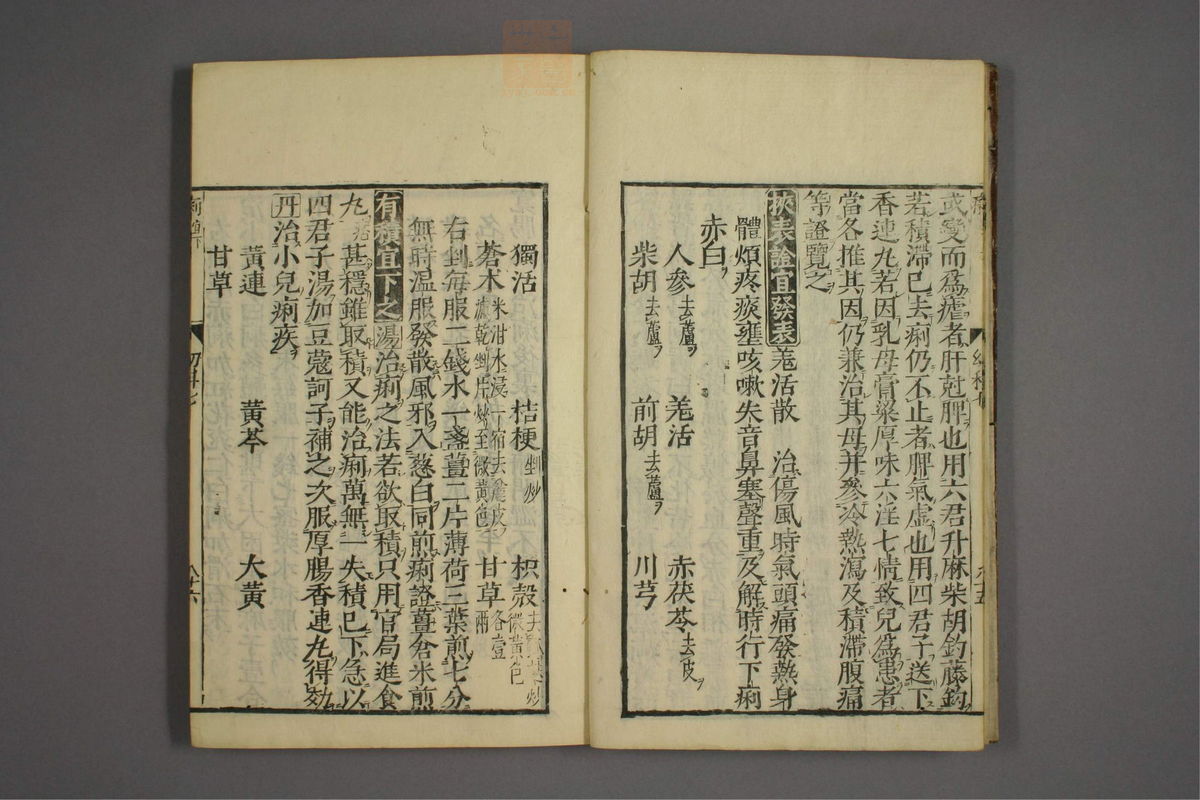 或變而爲瘧者肝尅脾也用六君升麻柴胡釣藤鈎
若積滯已去痢仍不止者脾氣虛也用四君子送下
香連丸若因乳母膏粱厚味六淫七情致兒爲患者
當各推其因仍兼治其母并參冷熱瀉及積滯腹痛
等證覽之
挾表證宜發表 羗活散 治傷風時氣頭痛發熱身
體煩疼痰壅咳嗽失音鼻塞聲重及解時行下痢
赤白
人參去蘆 羗活 赤茯苓去皮
柴胡去蘆 前胡去蘆 川芎
獨活 桔梗剉炒 枳殼
蒼术米泔水浸一宿去皮濾乾剉片炒至微黃色 甘草各壹兩
右剉每服二錢水一盞薑二片薄荷三葉煎七分
無時溫服發散風邪入葱白同煎痢證薑倉米煎
有積宜下之 湯治痢之法若欲取積只用官局進食
丸 甚穩雖取積又能治痢萬無一失積已下急以
四君子湯加豆蔻訶子補之次服厚腸香連丸得効
丹治小兒痢疾
黃連 黃芩 大黃
甘草